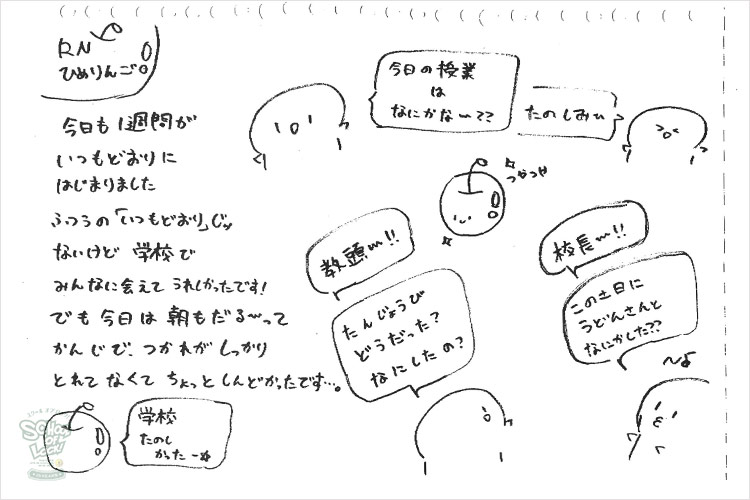 RN
ひめりんご
今日も1週間が
いつもどおりに
はじまりました
ふつうの「いつもどおり」じゃ
ないけど 学校で
みんなに会えて うれしかったです!
でも今日は 朝もだる〜って
かんじで、つかれが しっかり
とれて なくて ちょっと しんどかったです…。
学校
たのし
かったー
今日の授業
は
なにかな〜??
たのしみ
つやつや
教頭〜!!
たんじょうび
どうだった?
なにしたの?
校長〜!!
この土日に
うどんさんと
なにかした??